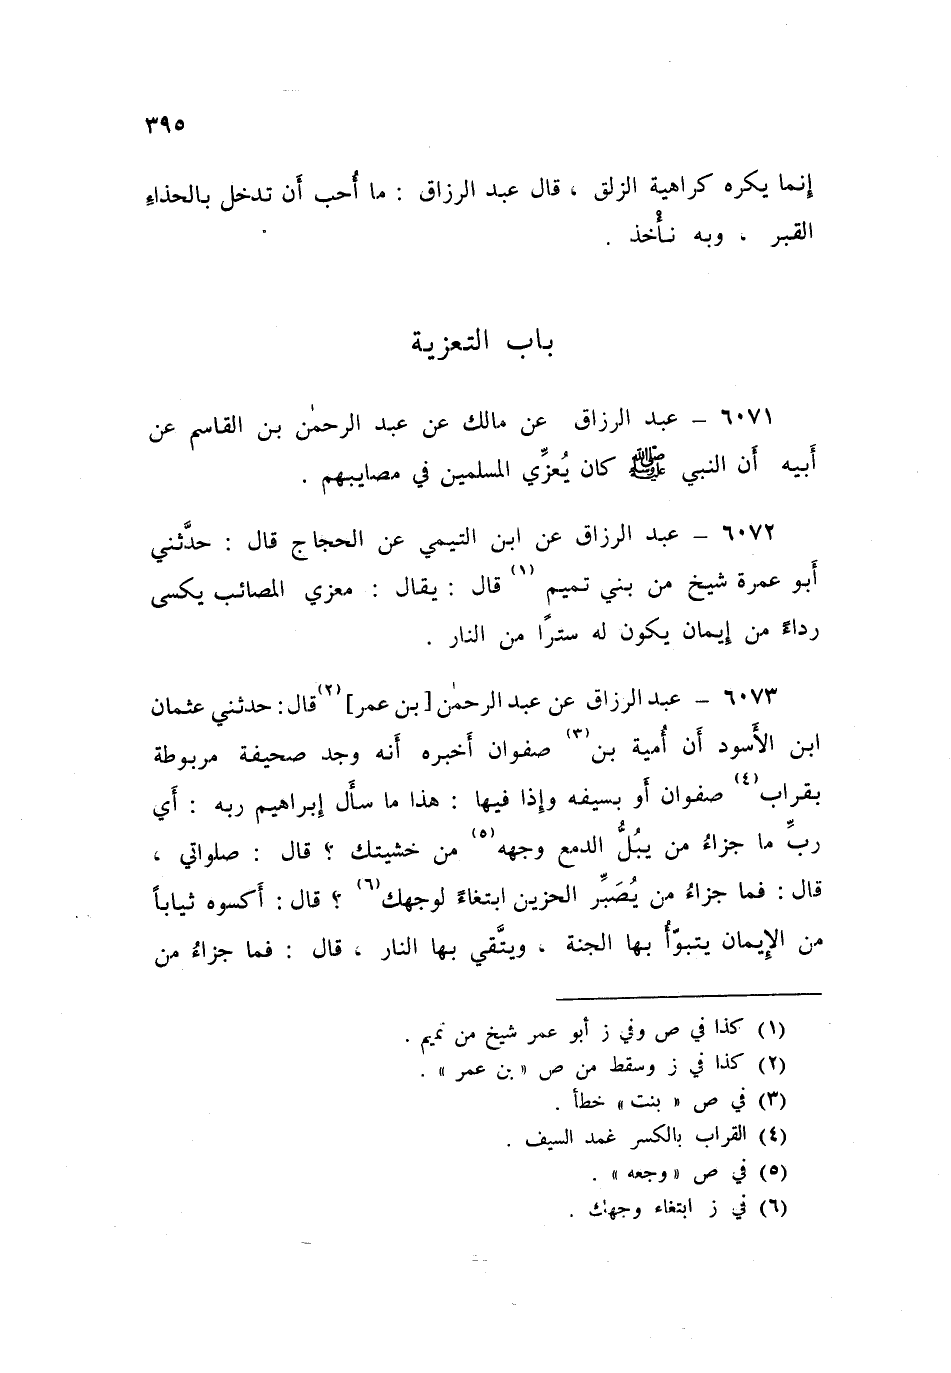 ٣٩٥
إِنما يكره كراهية الزلق ، قال عبد الرزاق : ما أُحب أَن تدخل بالحذاءِ
القبر ، وبه نأْخذ .
باب التعزية
٦٠٧١ – عبد الرزاق عن مالك عن عبد الرحمٰن بن القاسم عن
أَبيه أَن النبي ﷺ كان يُعزِّي المسلمين في مصايبهم .
٦٠٧٢ – عبد الرزاق عن ابن التيمي عن الحجاج قال : حدَّثني
أَبو عمرة شيخ من بني تميم (١) قال : يقال : معزي المصائب يكسى
رداءً من إِيمان يكون له سترًا من النار .
٦٠٧٣ – عبد الرزاق عن عبد الرحمٰن [بن عمر] (٢) قال : حدثني عثمان
ابن الأَسود أَن أُمية بن (٣) صفوان أَخبره أَنه وجد صحيفة مربوطة
بقراب (٤) صفوان أَو بسيفه وإِذا فيها : هذا ما سأَل إِبراهيم ربه : أَي
ربِّ ما جزاءُ من يبُلُّ الدمع وجهه (٥) من خشيتك ؟ قال : صلواتي ،
قال : فما جزاءُ من يُصَبِّر الحزين ابتغاءً لوجهك (٦) ؟ قال : أَكسوه ثياباً
من الإِيمان يتبوّأُ بها الجنة ، ويتَّقي بها النار ، قال : فما جزاءُ من
(١) كذا في ص وفي ز أبو عمر شيخ من تميم .
(٢) كذا في ز وسقط من ص « بن عمر » .
(٣) في ص « بنت » خطأ .
(٤) القراب بالكسر غمد السيف .
(٥) في ص « وجعه » .
(٦) في ز ابتغاء وجهك .